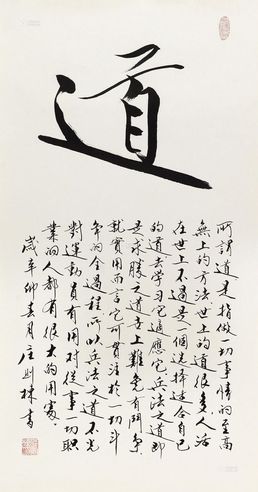 道
所謂道是指做一切事情的至高
無上的方法世上的道很多人活
在世上不過是一個選擇适合自己
的道去學习它適應它兵法之道即
是求勝之道世上難免有鬥爭
就實用而言它可贯注於一切斗
争的全過程所以兵法之道不光
對運動員有用对從事一切职
業的人都有很大的用處
歲辛卯春月庄则棟書